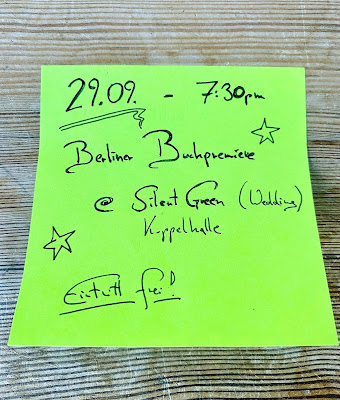 29.09. - 7:30pm
Berliner Buchpremiere
@ Silent Green (Wedding)
Kuppelhalle
Eintritt frei!